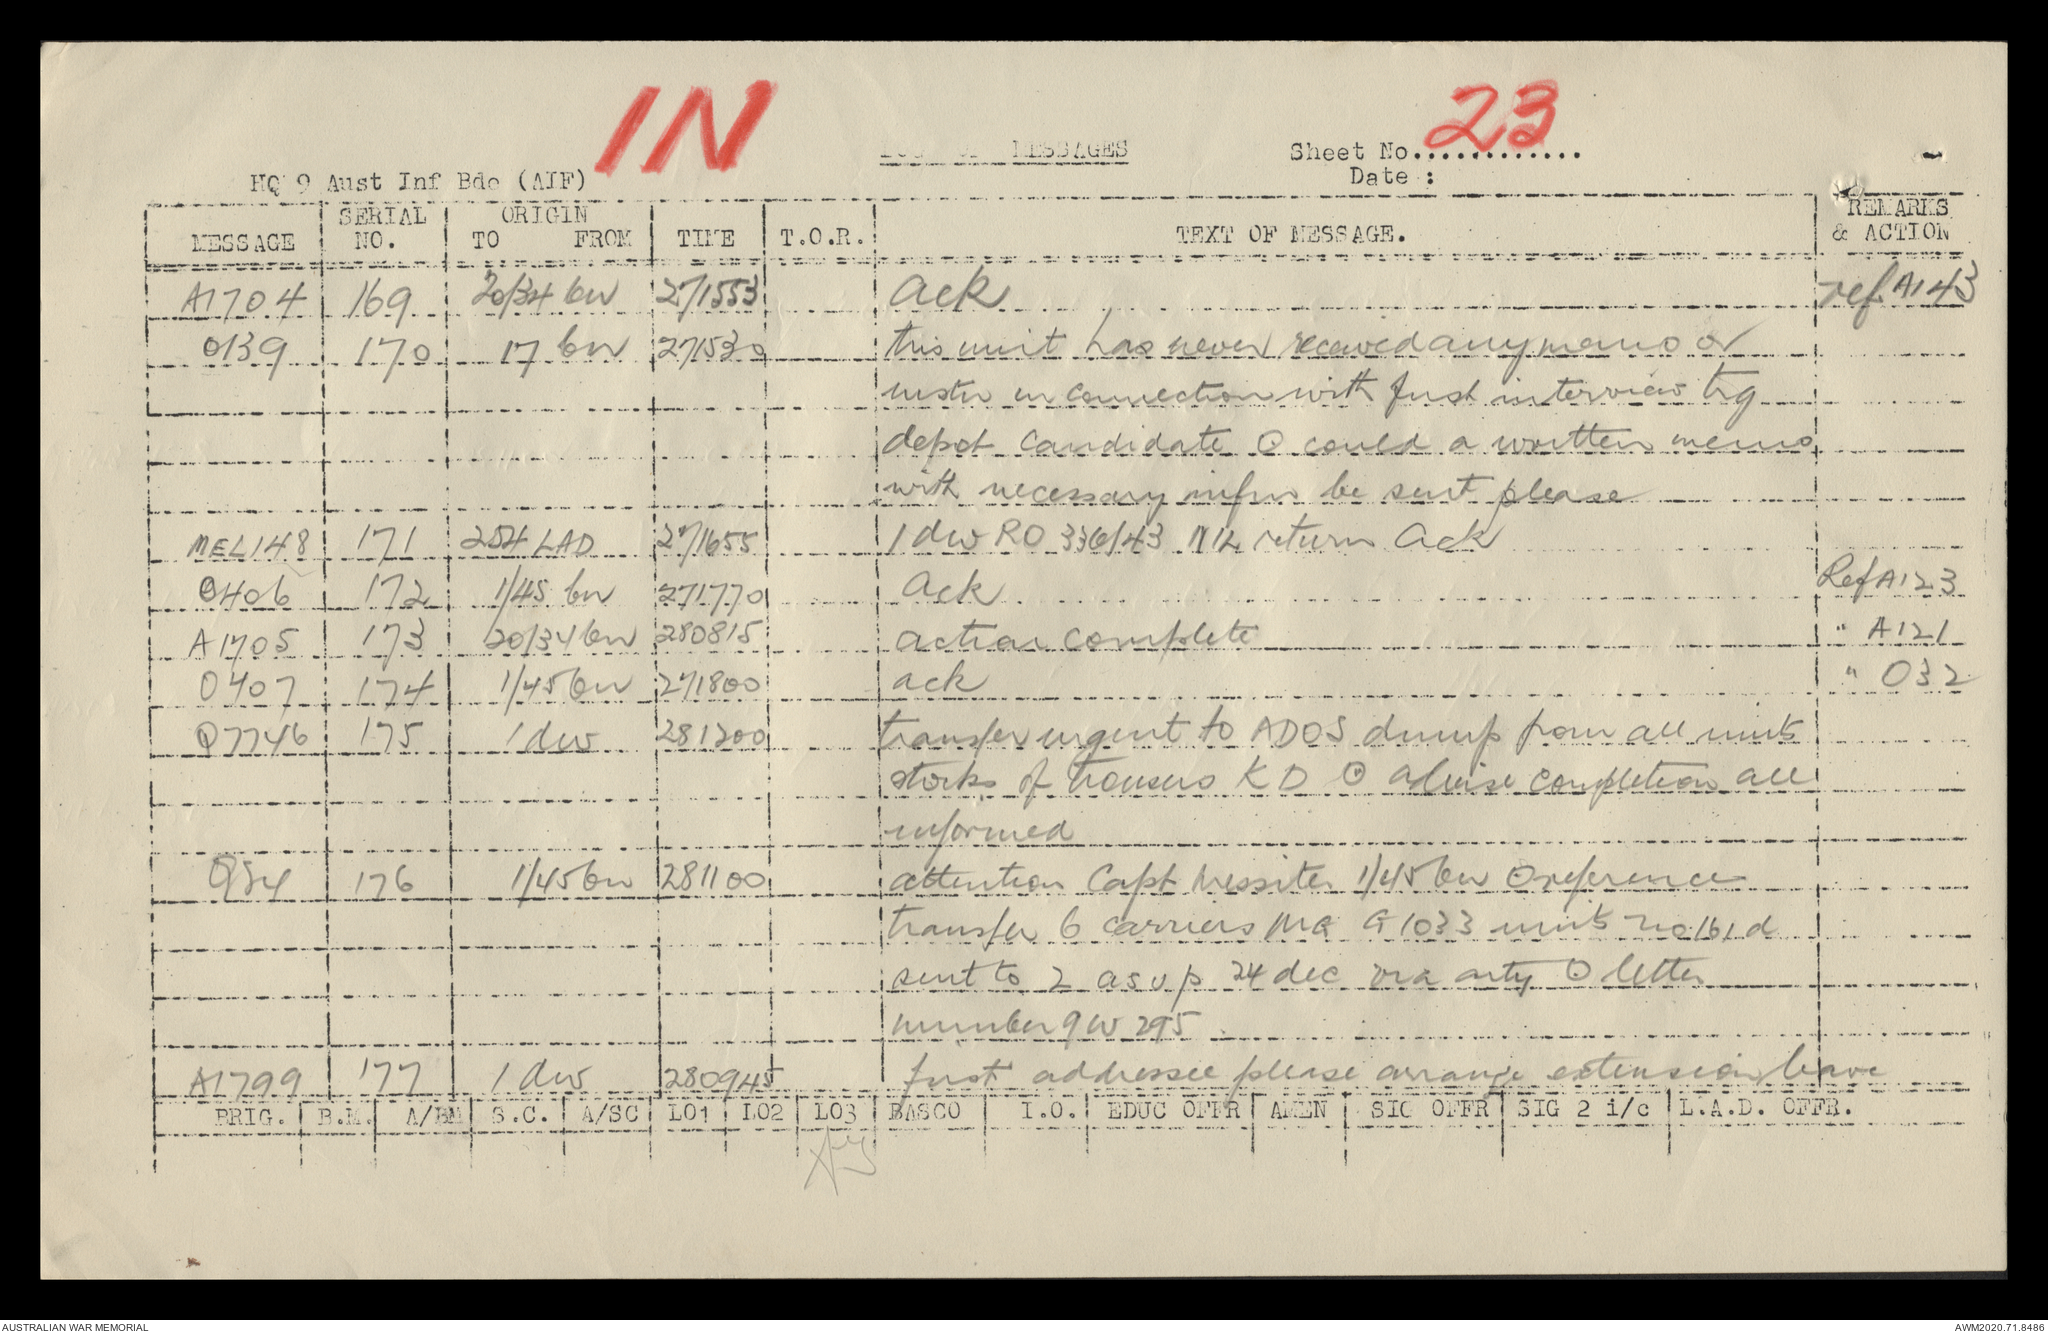 IN
23
LOG OF MESSAGES
Sheet No............
Date :
HQ 9 Aust Inf Bde (AIF)
MESSAGE SERIAL NO. ORIGIN TO FROM TIME T.O.R. TEXT OF MESSAGE. REMARKS & ACTION
A1704 169 20/34 bn 271553 ack ref A143
O139 170 17 bn 271530 this unit has never received any memo or
instn in connection with first interview trg
depot candidate ⊙ could a written memo
with necessary infm be sent please
MEL148 171 254 LAD 271655 1 div RO 336/43 return Ack
O406 172 1/45 bn 271770 ack Ref A123
A1705 173 20/34 bn 280815 action complete " A121
O407 174 1/45 bn 271800 ack " O32
Q7746 175 1 div 281200 transfer urgent to ADOS dump from all units
stocks of trousers K D ⊙ advise completion all
informed
Q54 176 1/45 bn 281100 attention Capt 1/45 bn ⊙ reference
transfer 6 carriers MG G1033 units no 161d
sent to 2 a s v p 24 dec via arty ⊙ letter
number 9W 295
A1799 177 1 div 280945 first addressee please arrange extension leave
BRIG. B.M. A/BM S.C. A/SC LO1 LO2 LO3 BASCO I.O. EDUC OFFR AMEN SIG OFFR SIG 2 i/c L.A.D. OFFR.
AUSTRALIAN WAR MEMORIAL
AWM2020.71.8486